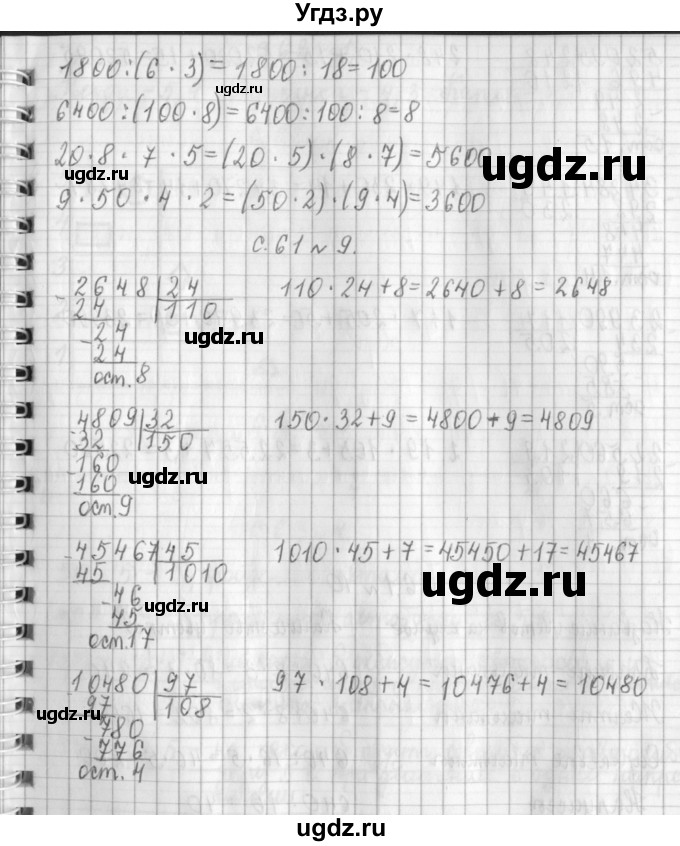 Угдз.ру
1800:(6·3)=1800:18=100
6400:(100·8)=6400:100:8=8
20·8·7·5=(20·5)·(8·7)=5600
9·50·4·2=(50·2)·(9·4)=3600
с.61 N 9.
2648 24 110·24+8=2640+8=2648
24 110
24
24
ост.8
4809 32 150·32+9=4800+9=4809
32 150
160
160
ост.9
45467 45 1010·45+7=45450+17=45467
45 1010
46
45
ост.17
10480 97 97·108+4=10476+4=10480
97 108
780
776
ост.4
ugdz.ru
ugdz.ru
ugdz.ru
ugdz.ru
ugdz.ru
ugdz.ru
ugdz.ru
ugdz.ru
ugdz.ru
ugdz.ru
ugdz.ru
ugdz.ru